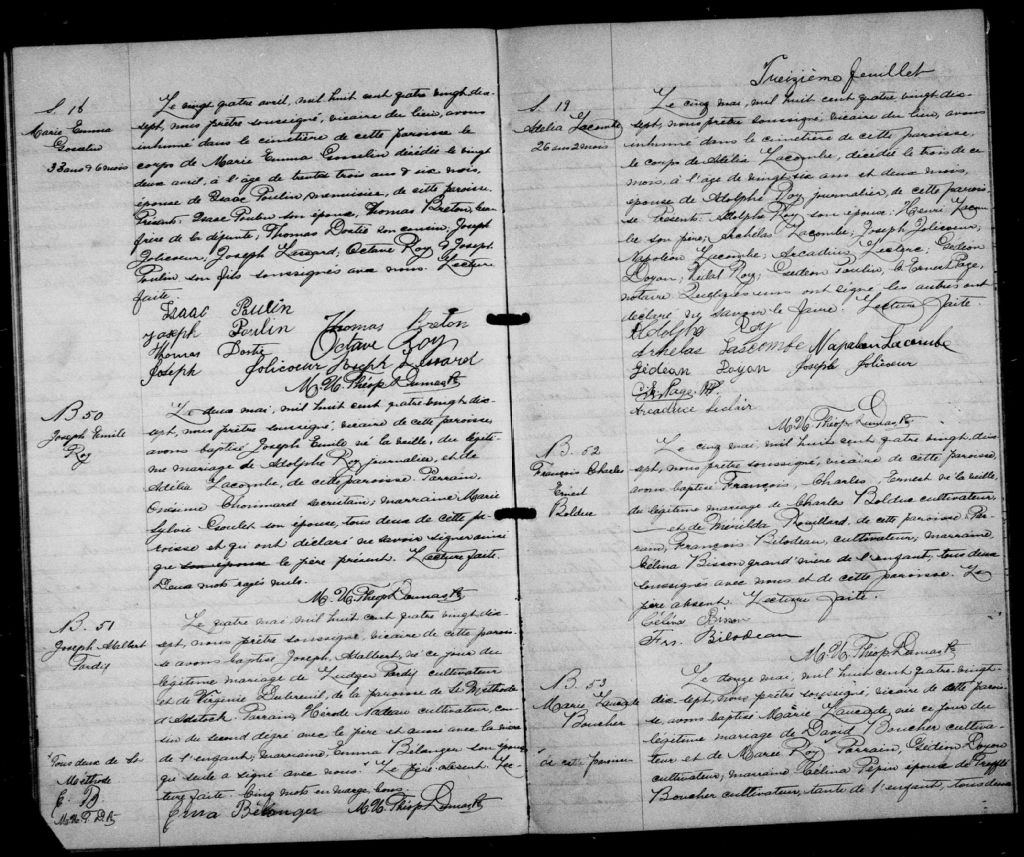 S. 18
Marie Emma
Gosselin
33 ans & 6 mois
Le vingt quatre avril, mil huit cent quatre vingt dix-
sept, nous prêtre soussigné, vicaire du lieu, avons
inhumé dans le cimetière de cette paroisse le
corps de Marie Emma Gosselin décédée le vingt
deux avril, à l'âge de trente trois ans & six mois,
épouse de Isaac Poulin, menuisier, de cette paroisse.
Présents: Isaac Poulin son époux, Thomas Breton, beau
frère de la défunte; Thomas Dostie son cousin, Joseph
Jolicoeur; Joseph Lessard; Octave Roy & Joseph
Poulin son fils soussignés avec nous. Lecture
faite.
Isaac Poulin
Joseph Poulin Thomas Breton
Thomas Dostie Octave Roy
Joseph Jolicoeur Joseph Lessard
M. U. Théop Dumas Ptr
B 50
Joseph Emile
Roy
Le deux mai, mil huit cent quatre vingt dix-
sept, nous prêtre soussigné, vicaire de cette paroisse
avons baptisé Joseph Emile né la veille, du légiti-
me mariage de Adolphe Roy journalier, et de
Adélia Lacombe, de cette paroisse. Parrain,
Onésime Chouinard secrétaire; marraine Marie
Sylvie Goulet son épouse, tous deux de cette pa-
roisse et qui ont déclaré ne savoir signer ainsi
que le père présent. Lecture faite.
Deux mots rayés nuls.
M. U. Théop Dumas Ptr
B. 51
Joseph Adalbert
Tardif
Le quatre mai mil huit cent quatre vingt dix-
sept, nous prêtre soussigné, vicaire de cette parois-
se avons baptisé Joseph, Adalbert, né ce jour du
légitime mariage de Ludger Tardif cultivateur
et de Virginie Dubreuil, de la paroisse de St Méthode
d'Adstock. Parrain, Hérode Nadeau cultivateur, cou-
sin du second degré avec le père et aussi avec la mère
de l'enfant; marraine, Emma Bélanger son épouse
qui seule a signé avec nous. Le père absent. Lec-
ture faite. Cinq mots en marge bons.
Tous deux de St
Méthode
E. B
M. U. T. D. Ptr
Emma Bélanger M. U. Théop Dumas Ptr
Treizième feuillet
S. 19
Adélia Lacombe
26 ans 2 mois
Le cinq mai, mil huit cent quatre vingt dix-
sept, nous prêtre soussigné, vicaire du lieu, avons
inhumé dans le cimetière de cette paroisse,
le corps de Adélia Lacombe, décédée le trois de ce
mois, à l'âge de vingt six ans et deux mois,
épouse de Adolphe Roy journalier, de cette parois-
se. Présents: Adolphe Roy son époux; Henri Lacom-
be son père; Archélas Lacombe; Joseph Jolicoeur;
Napoléon Lacombe; Arcadius Leclerc; Gédéon
Doyon; Roy; Gédéon Poulin, & Ernest Page,
notaire. Quelques uns ont signé, les autres ont
déclaré ne savoir le faire. Lecture faite.
Adolphe Roy
Arhelas Lascombe Napoleon Lacombe
Gédéon Doyon Joseph Jolicoeur
Page. N.P.
Arcaduce leclair
M. U. Théop Dumas Ptr
B. 52
François Charles
Ernest
Bolduc
Le cinq mai, mil huit cent quatre vingt dix
sept, nous prêtre soussigné, vicaire de cette paroisse,
avons baptisé François, Charles, Ernest né la veille,
du légitime mariage de Charles Bolduc cultivateur
et de Mérilda Rouillard, de cette paroisse. Par-
rain, François Bilodeau, cultivateur; marraine
Célina Bisson grand'mère de l'enfant, tous deux
soussignés avec nous et de cette paroisse. Le
père absent. Lecture faite.
Célina Bisson
Frs. Bilodeau
M. U. Théop Dumas Ptr
B. 53
Marie Laurade
Boucher
Le douze mai, mil huit cent quatre vingt-
dix-sept, nous prêtre soussigné, vicaire de cette parois-
se, avons baptisé Marie Laurade, née ce jour du
légitime mariage de David Boucher cultiva-
teur et de Marie Roy. Parrain, Gédéon Doyon
cultivateur; marraine Célina Pépin épouse de Treffle
Boucher cultivateur, tante de l'enfant, tous deux
de cette paroisse